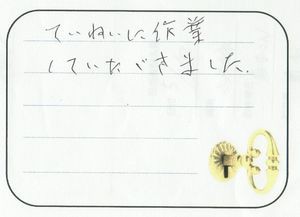 ていねいに作業
していただきました.